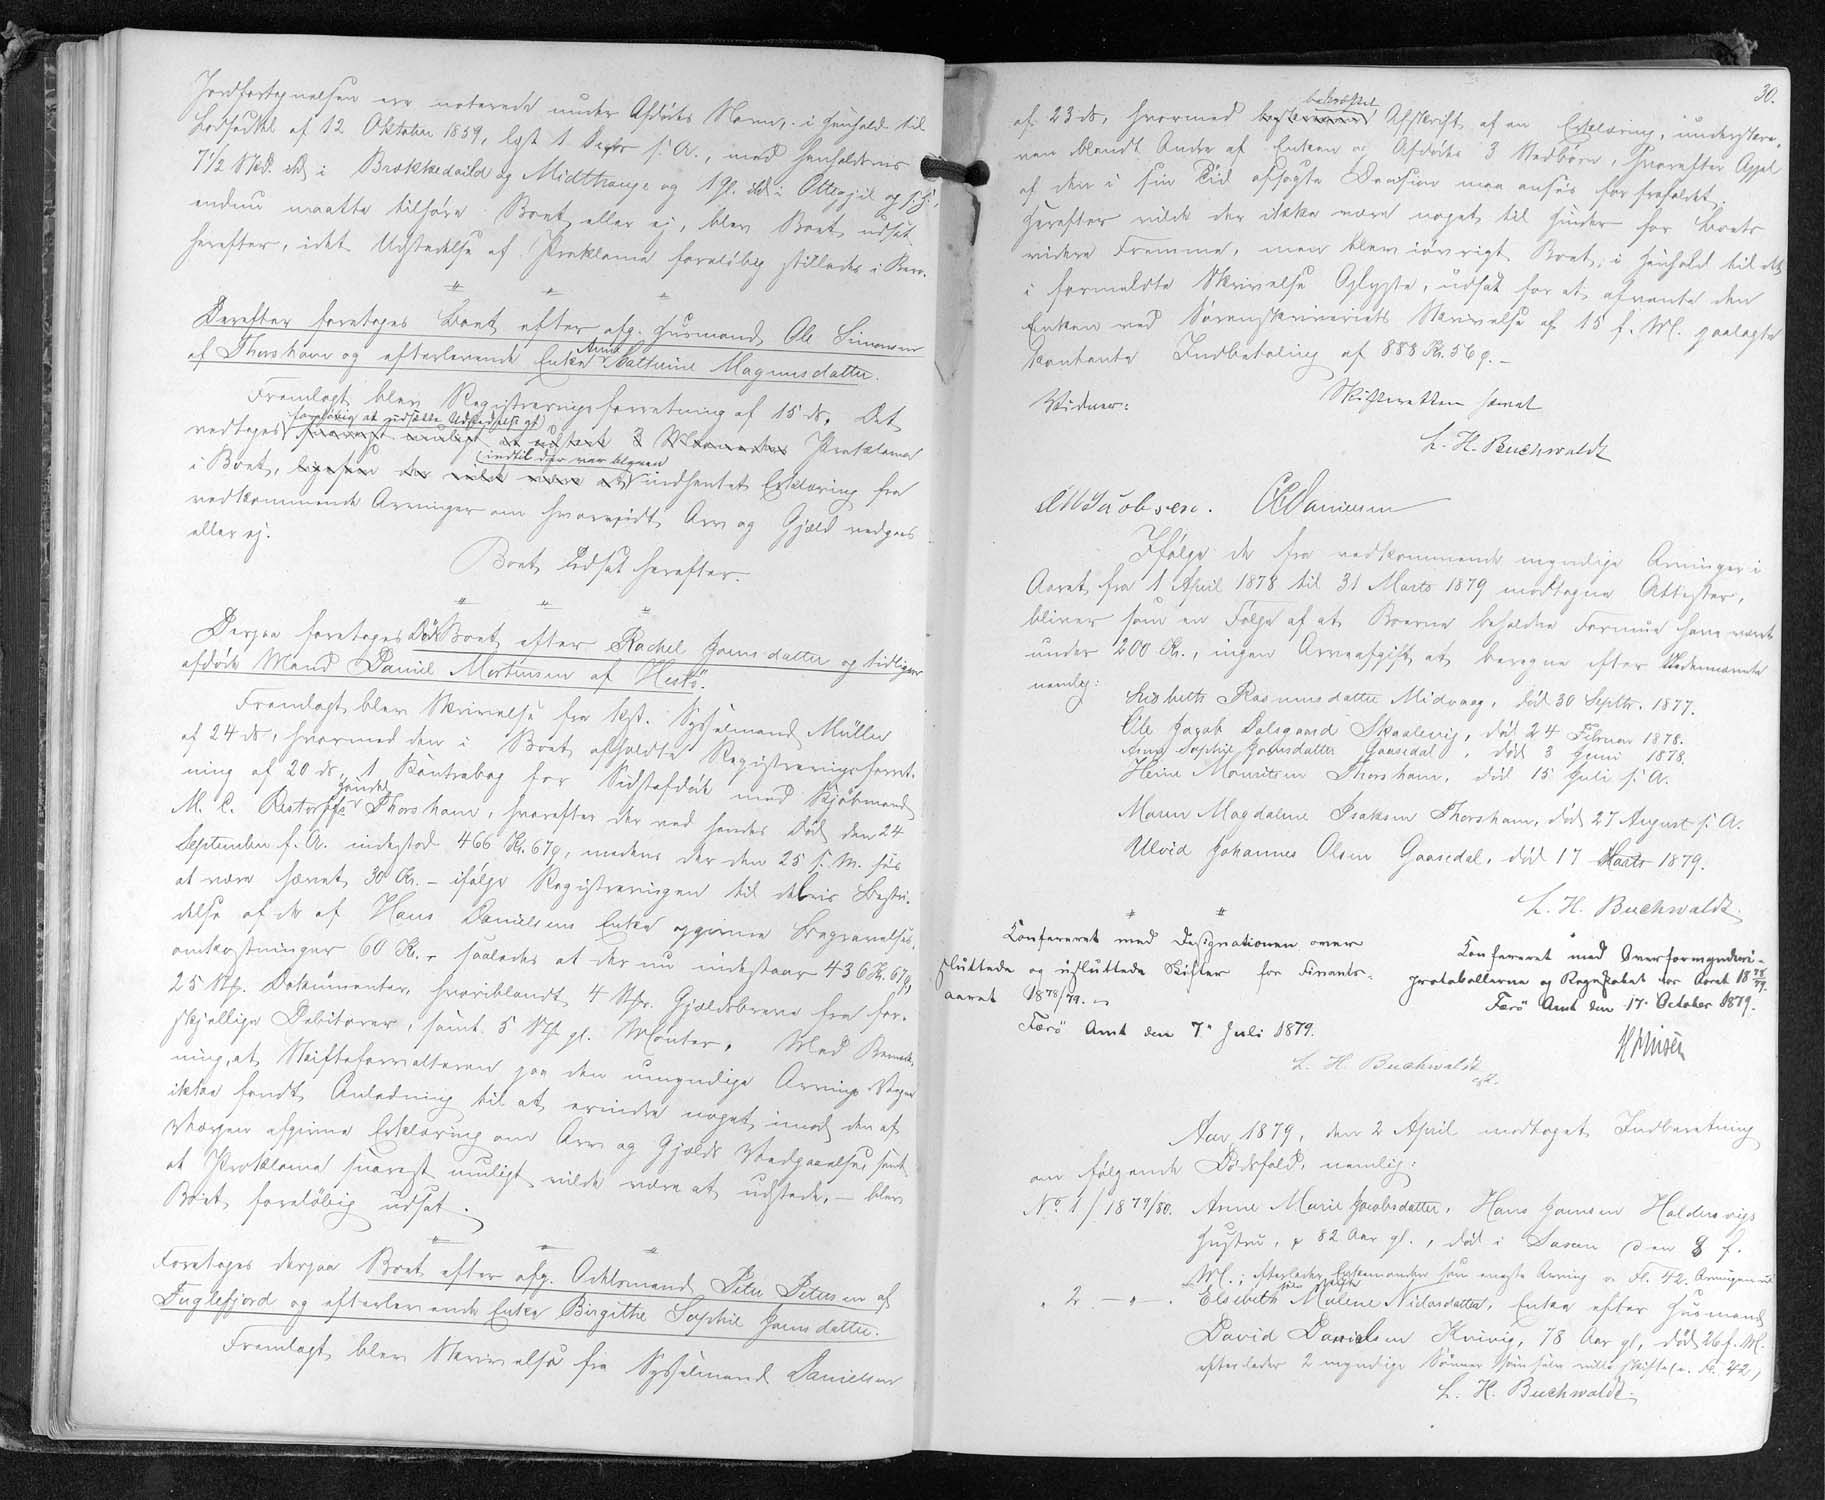 Jordfortegnelsen er noterede under Afdødes Navn, i Henhold til
Lodseddel af 12 Oktober 1859, lgst 1 s. A., med Henholdsvis
7 1/2 Skd. i Brækkedaild og Midthauge og 1 gl. i Ottegjil og
endnu maatte tilføre Boet eller ej, blev Boet udsat
herefter, idet Udstedelse af Proklama foreløbig stilledes i Bero.
Derefter foretoges Boet efter afg. Husmand Ole Simonsen
af Thorshavn og efterlevende Enke Anne Cathrine Magnusdatter.
Fremlagt blev Registreringsforretning af 15 ds. Det
vedtoges foreløbig at udsætte Udstedelse af Proklama
i Boet, indtil der var bleven indhentet Erklæring fra
vedkommende Arvinger om hvorvidt Arv og Gjæld vedgaaes
eller ej.
Boet udsat herefter.
Derpaa foretoges Død Boet efter Rachel Joensdatter og tidligere
afdøde Mand Daniel Mortensen af Hestø.
Fremlagt blev Skrivelse fra kst. Sysselmand Müller
af 24 ds., hvormed den i Boet afholdte Registreringsforret-
ning af 20 ds., 1 Kontrabog for Sidstafdøde med Kjøbmand
M. C. Restorffs Handel Thorshavn, hvorefter der ved hendes Død den 24
September f. A. indestod 466 Kr. 67 ø, medens der den 25 f. M. sees
at være hævet 30 Kr. – ifølge Registreringen til delvis Bestri-
delse af de af Hans Danielsens Enke opgivne Begravelses-
omkostninger 60 Kr., saaledes at der nu indestaaer 436 Kr. 67 ø,
25 Stk. Dokumenter, hvoriblandt 4 Stk. Gjældsbreve fra for-
skjellige Debitorer, samt 5 Stk gl. Mønter. Med Bemærk-
ning, at Skifteforvalteren paa den umyndige Arvings Vegne
ikke fandt Anledning til at erindre noget imod den af
Værgen afgivne Erklæring om Arv og Gjælds Vedgaaelse, samt
at Proklama snarest muligt vilde være at udstede, – blev
Boet foreløbig udsat.
Foretoges derpaa Boet efter afg. Odelsmand Peter Petersen af
Fuglefjord og efterlevende Enke Birgitthe Sophie Joensdatter.
Fremlagt blev Skrivelse fra Sysselmand Danielsen
30.
af 23 ds., hvormed bekræftet Afskrift af en Erklæring, underskre-
ven blandt Andre af Enken og Afdødes 3 Stedbørn, hvorefter Appel
af den i sin Tid afsagte Decision maa ansees for frafaldet.
Herefter vilde der ikke være noget til Hinder for Boets
videre Fremme, men blev iøvrigt Boet, i Henhold til det
i formeldte Skrivelse Oplyste, udsat for at afvente den
Enken ved Sorenskriveriets Skrivelse af 15 f. M. paalagte
kontante Indbetaling af 888 Kr. 56 ø. –
Vidner:
Skifteretten hævet
L. H. Buchwaldt
Jacobsen. Danielsen
Ifølge de fra vedkommende myndige Arvinger i
Aaret fra 1 April 1878 til 31 Marts 1879 modtagne Attester,
bliver som en Følge af at Boerne beholdne Formue have været
under 200 Kr., ingen Arveafgift at beregne efter Nedennævnte
nemlig:
Lisbeth Rasmusdatter Midvaag, død 30 Septbr. 1877.
Ole Jacob Dalsgaard Skaalevig, død 24 Februar 1878.
Anna Sophie Joensdatter Gaasedal, død 3 Juni 1878.
Heine Mouritsen Thorshavn, død 15 Juli s. A.
Maren Magdalene Isaksen Thorshavn, død 27 August s. A.
Ulvid Johannes Olsen Gaasedal, død 17 Marts 1879.
L. H. Buchwaldt.
Confereret med Designationen over
sluttede og usluttede Skifter for Finants-
aaret 1878/79.
Færø Amt den 7de Juli 1879.
L. H. Buchwaldt
cst.
Confereret med Overformynderi-
protokollerne og Regnskabet for Aaret 1878/79.
Færø Amt den 17. October 1879.
Aar 1879, den 2 April modtoges Indberetning
om følgende Dødsfald, nemlig:
No. 1/1879/80. Anne Marie Jacobsdatter, Hans Joensen Haldersvigs
Hustru, 82 Aar gl., død i Saxen den 8 f.
M.; efterlader Enkemanden som eneste Arving v. Fl. 42.
" 2 — " — . Elsebeth Malene Niclasdatter, Enke efter Husmand
David Danielsen Kvivig, 78 Aar gl., død 26 f. M.
efterlader 2 myndige Sønner som selv ville skifte (v. Fl. 42)
L. H. Buchwaldt.